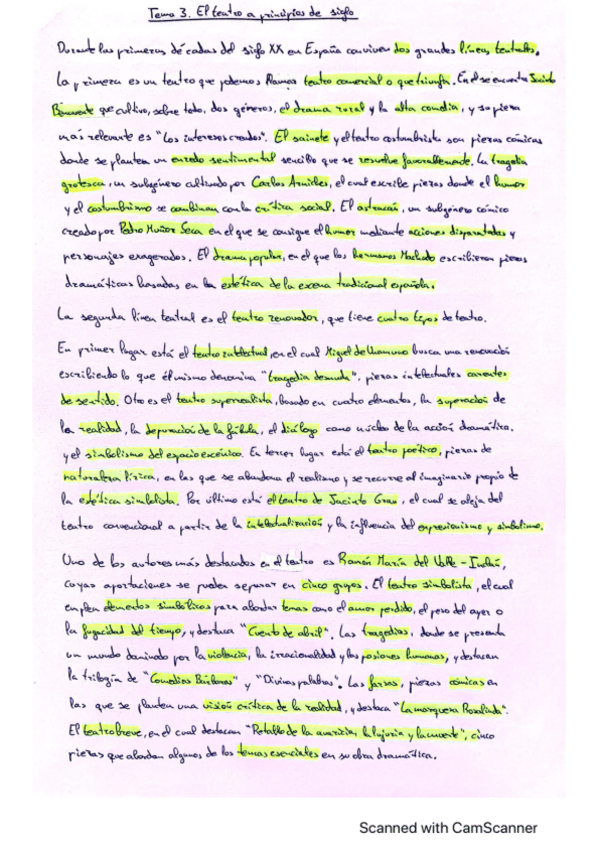 Tema 3. El teatro a principios de siglo
Durante las primeras décadas del siglo XX en España conviven dos grandes líneas teatrales.
La primera es un teatro que podemos llamar teatro comercial o que triunfa. En él se encuentra Jacinto
Benavente que cultivó, sobre todo, dos géneros, el drama rural y la alta comedia, y su pieza
más relevante es "Los intereses creados". El sainete y el teatro costumbrista son piezas cómicas
donde se plantea un enredo sentimental sencillo que se resuelve favorablemente. La tragedia
grotesca, un subgénero cultivado por Carlos Arniches, el cual escribe piezas donde el humor
y el costumbrismo se combinan con la crítica social. El astracán, un subgénero cómico
creado por Pedro Muñoz Seca en el que se consigue el humor mediante acciones disparatadas y
personajes exagerados. El drama popular, en el que los hermanos Machado escribieron piezas
dramáticas basadas en la estética de la escena tradicional española.
La segunda línea teatral es el teatro renovador, que tiene cuatro tipos de teatro.
En primer lugar está el teatro intelectual, en el cual Miguel de Unamuno busca una renovación
escribiendo lo que él mismo denomina "tragedia desnuda", piezas intelectuales carentes
de sentido. Otro es el teatro superrealista, basado en cuatro elementos, la superación de
la realidad, la depuración de la fábula, el diálogo como núcleo de la acción dramática,
y el simbolismo del espacio escénico. En tercer lugar está el teatro poético, piezas de
naturaleza lírica, en las que se abandona el realismo y se recurre al imaginario propio de
la estética simbolista. Por último está el teatro de Jacinto Grau, el cual se aleja del
teatro convencional a partir de la intelectualización y la influencia del expresionismo y simbolismo.
Uno de los autores más destacados en el teatro es Ramón María del Valle-Inclán,
cuyas aportaciones se pueden separar en cinco grupos. El teatro simbolista, el cual
emplea elementos simbólicos para abordar temas como el amor perdido, el peso del ayer o
la fugacidad del tiempo, y destaca "Cuento de abril". Las tragedias, donde se presenta
un mundo dominado por la violencia, la irracionalidad y las pasiones humanas, y destacan
la trilogía de "Comedias Bárbaras" y "Divinas palabras". Las farsas, piezas cómicas en
las que se plantea una visión crítica de la realidad, y destaca "La marquesa Rosalinda".
El teatro breve, en el cual destacan "Retablo de la avaricia, la lujuria y la muerte", cinco
piezas que abordan algunos de los temas esenciales en su obra dramática.
Scanned with CamScanner